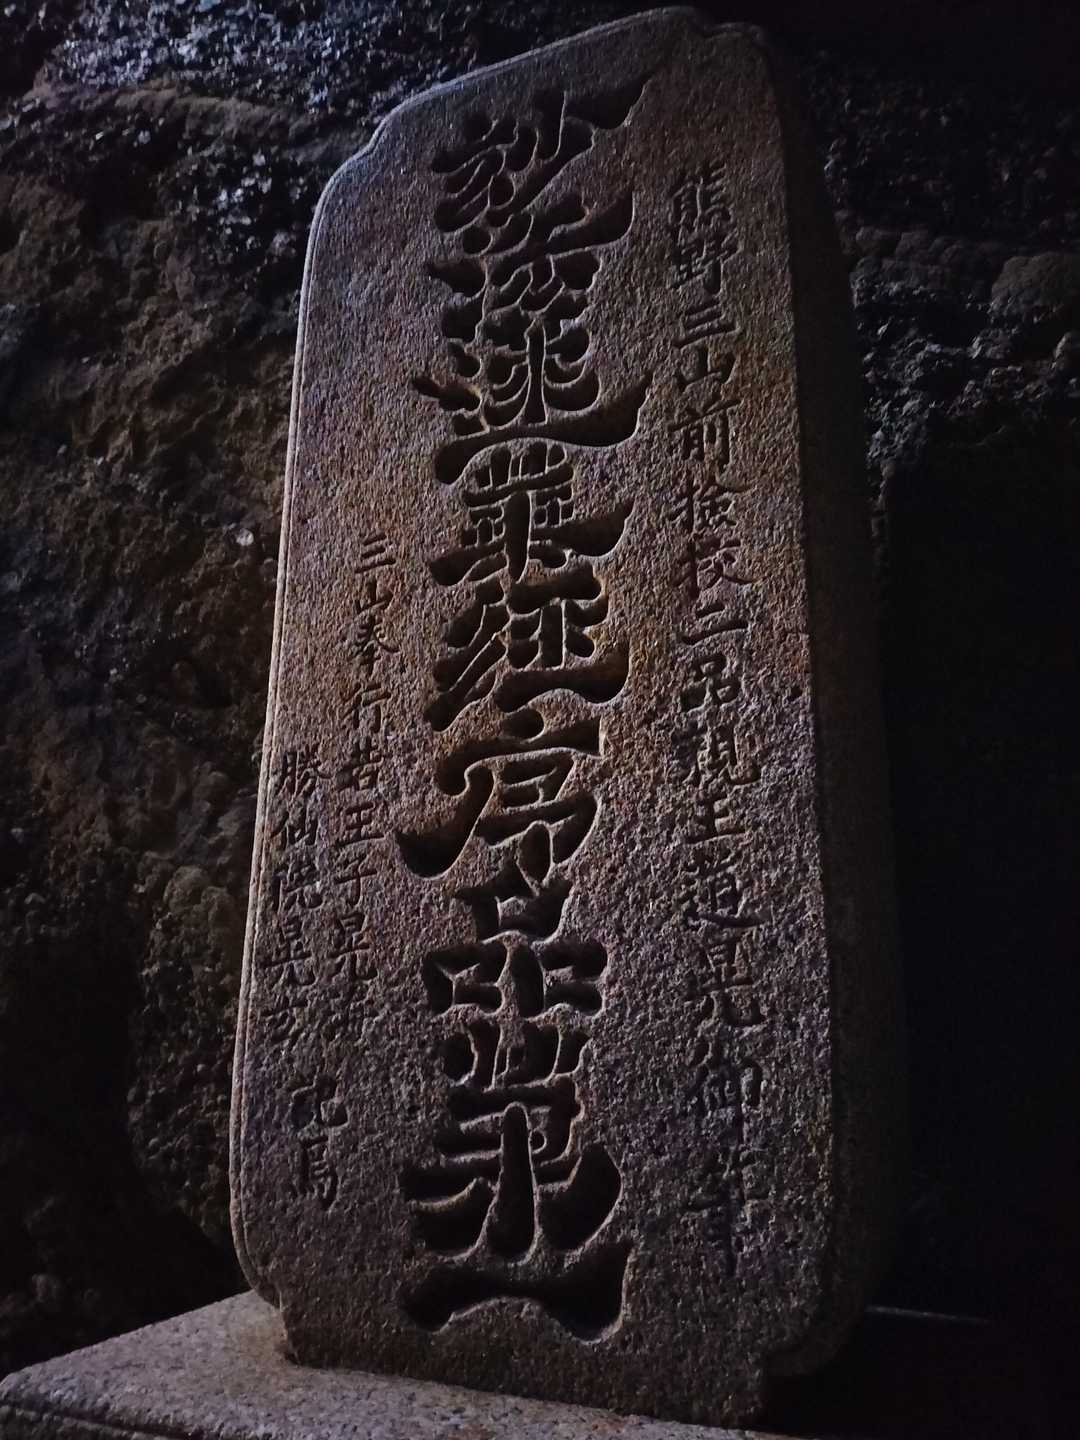 熊野三山前撿挍二品親王道晃御筆
玅法蓮華経序品第一
三山奉行若王子晃海
勝仙院晃玄
記焉